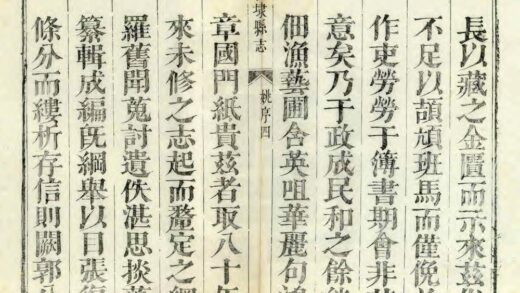 長以藏之金匱而示來茲
不足以頡頏班馬而僅俛
作吏勞勞于簿書期會非
意矣乃于政成民和之餘
佃漁藝圃含英咀華麗句
埭縣志
姚序四
章國門紙貴茲者取八十年
來未修之志起而釐定之網
羅舊聞蒐討遺佚湛思掞
纂輯成編旣綱舉以目張
條分而縷析存信則闕郭公